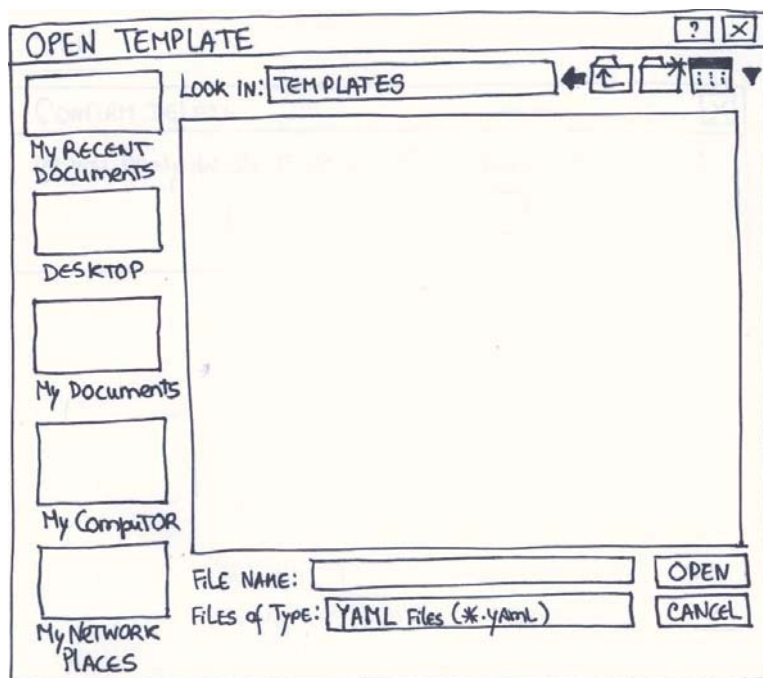 OPEN TEMPLATE ? X
LOOK IN: TEMPLATES
My RECENT
DOCUMENTS
DESKTOP
My Documents
My CompuTOR
My NETWORK
PLACES
FILE NAME: OPEN
FiLES of Type: YAML Files (*.yAmL) CANCEL